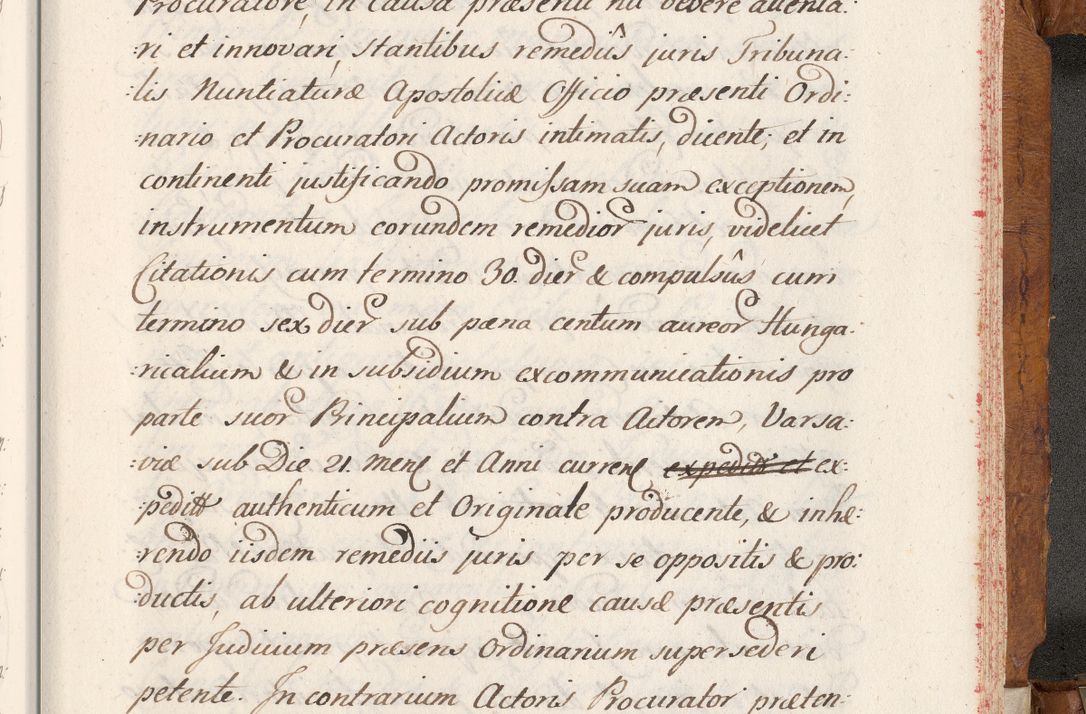 Procuratore, in causa præsenti nil debere attenta:
ri et innovari, stantibus remedÿs juris Tribuna:
:lis Nuntiaturæ Apostolicæ Officio præsenti Ordi:
:nario et Procuratori Actoris intimatis, dicente, et in
continenti justificando promissam suam exceptionem,
instrumentum eorundem remedior juris, videlicet
Citationis cum termino 30. dier & compulsûs cum
termino sex dier sub pæna centum aureor Hunga:
:ricalium & in subsidium excommunicationis pro
parte suor Principalium contra Actorem, Varsa:
:viæ sub Die 21. mens et Anni currens expeditt et ex:
:peditt authenticum et Originale producente, & inhæ:
:rendo iisdem remediis juris per se oppositis & pro:
:ductis, ab ulteriori cognitione causæ præsentis
per Judicium præsens Ordinarium supersederi
petente. In contrarium Actoris Procurator præten: